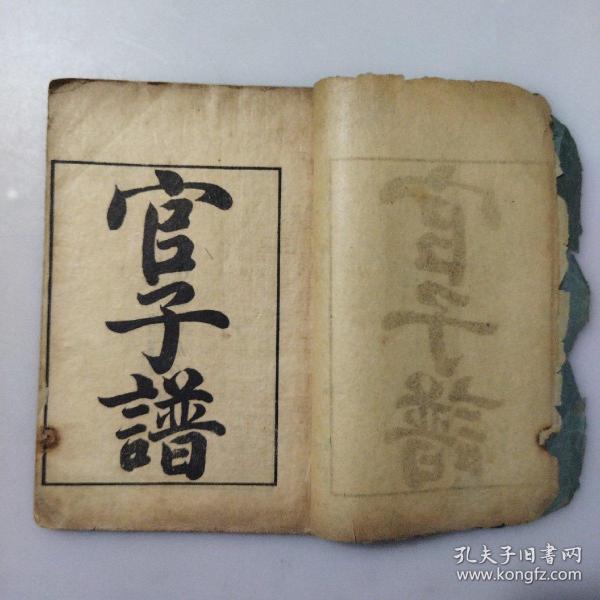 官子譜
官子譜
孔夫子旧书网
www.kongfz.com